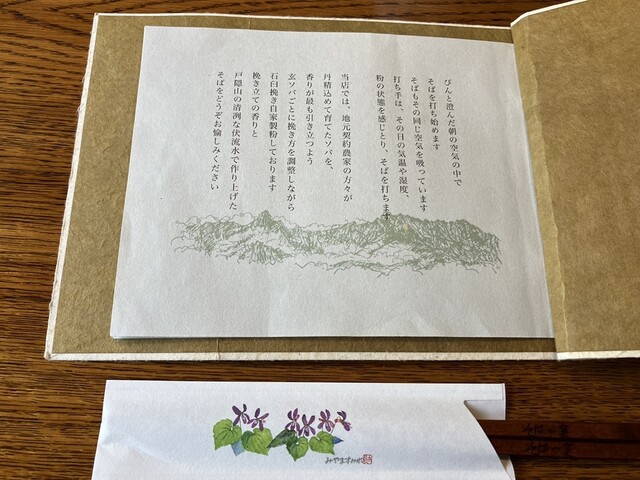 ぴんと澄んだ朝の空気の中で
そばを打ち始めます
そばもその同じ空気を吸っています
打ち手は、その日の気温や湿度、
粉の状態を感じとり、そばを打ちます
当店では、地元契約農家の方々が
丹精込めて育てたソバを、
香りが最も引き立つよう
玄ソバごとに挽き方を調整しながら
石臼挽き自家製粉しております
挽き立ての香りと
戸隠山の清冽な伏流水で作り上げた
そばをどうぞお愉しみください
みやますみれ